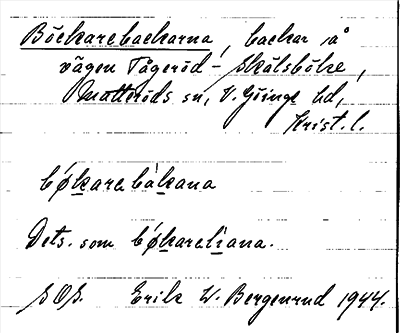 Böckarebackarna, backar på
vägen Tågeröd - Skålsböke,
Matteröds sn, V. Göinge hd,
Krist. l.
bǿkarebàkana
Dets. som bǿkarelìana.
SOS. Erik W. Bergenrud 1944.